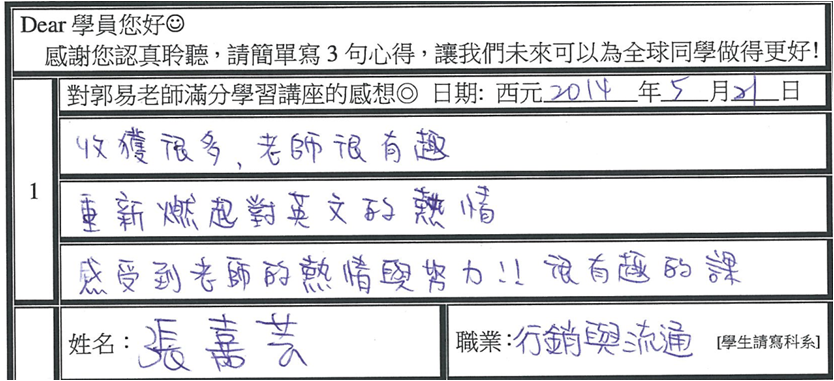 Dear 學員您好☺
感謝您認真聆聽，請簡單寫 3 句心得，讓我們未來可以為全球同學做得更好!
1 對郭易老師滿分學習講座的感想◎ 日期: 西元 2014 年 5 月 21 日
收獲很多、老師很有趣
重新燃起對英文的熱情
感受到老師的熱情與努力!! 很有趣的課
姓名：張喬芸 職業：行銷與流通 [學生請寫科系]